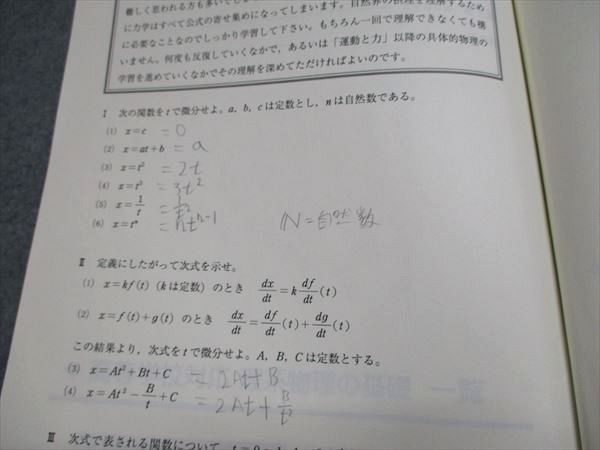 難しく思われる方も多いでし
に力学はすべて公式の寄せ集めになってしまいます。自然界の摂理を理解するため
に必要なことなのでしっかり学習して下さい。もちろん一回で理解できなくても構
いません。何度も反復していくなかで、あるいは「運動と力」以降の具体的物理の
学習を進めていくなかでその理解を深めてただければよいのです。
Ⅰ 次の関数をtで微分せよ。a, b, cは定数とし、nは自然数である。
(1) x=c = 0
(2) x=at+b = a
(3) x=t² = 2t
(4) x=t³ = 3t²
(5) x=1/t =
(6) x=tⁿ = ntⁿ⁻¹ N=自然数
Ⅱ 定義にしたがって次式を示せ。
(1) x=kf(t) (kは定数) のとき dx/dt=k df/dt(t)
(2) x=f(t)+g(t) のとき dx/dt=df/dt(t)+dg/dt(t)
この結果より、次式をtで微分せよ。A, B, Cは定数とする。
(3) x=At²+Bt+C = 2At+B
(4) x=At²-B/t+C = 2At+B/t²
物理の基礎 一覧
Ⅲ 次式で表される関数について、